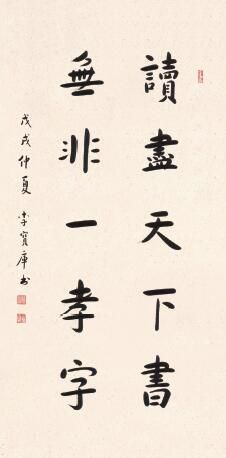 讀盡天下書
無非一孝字
戊戌仲夏 李寳庫书